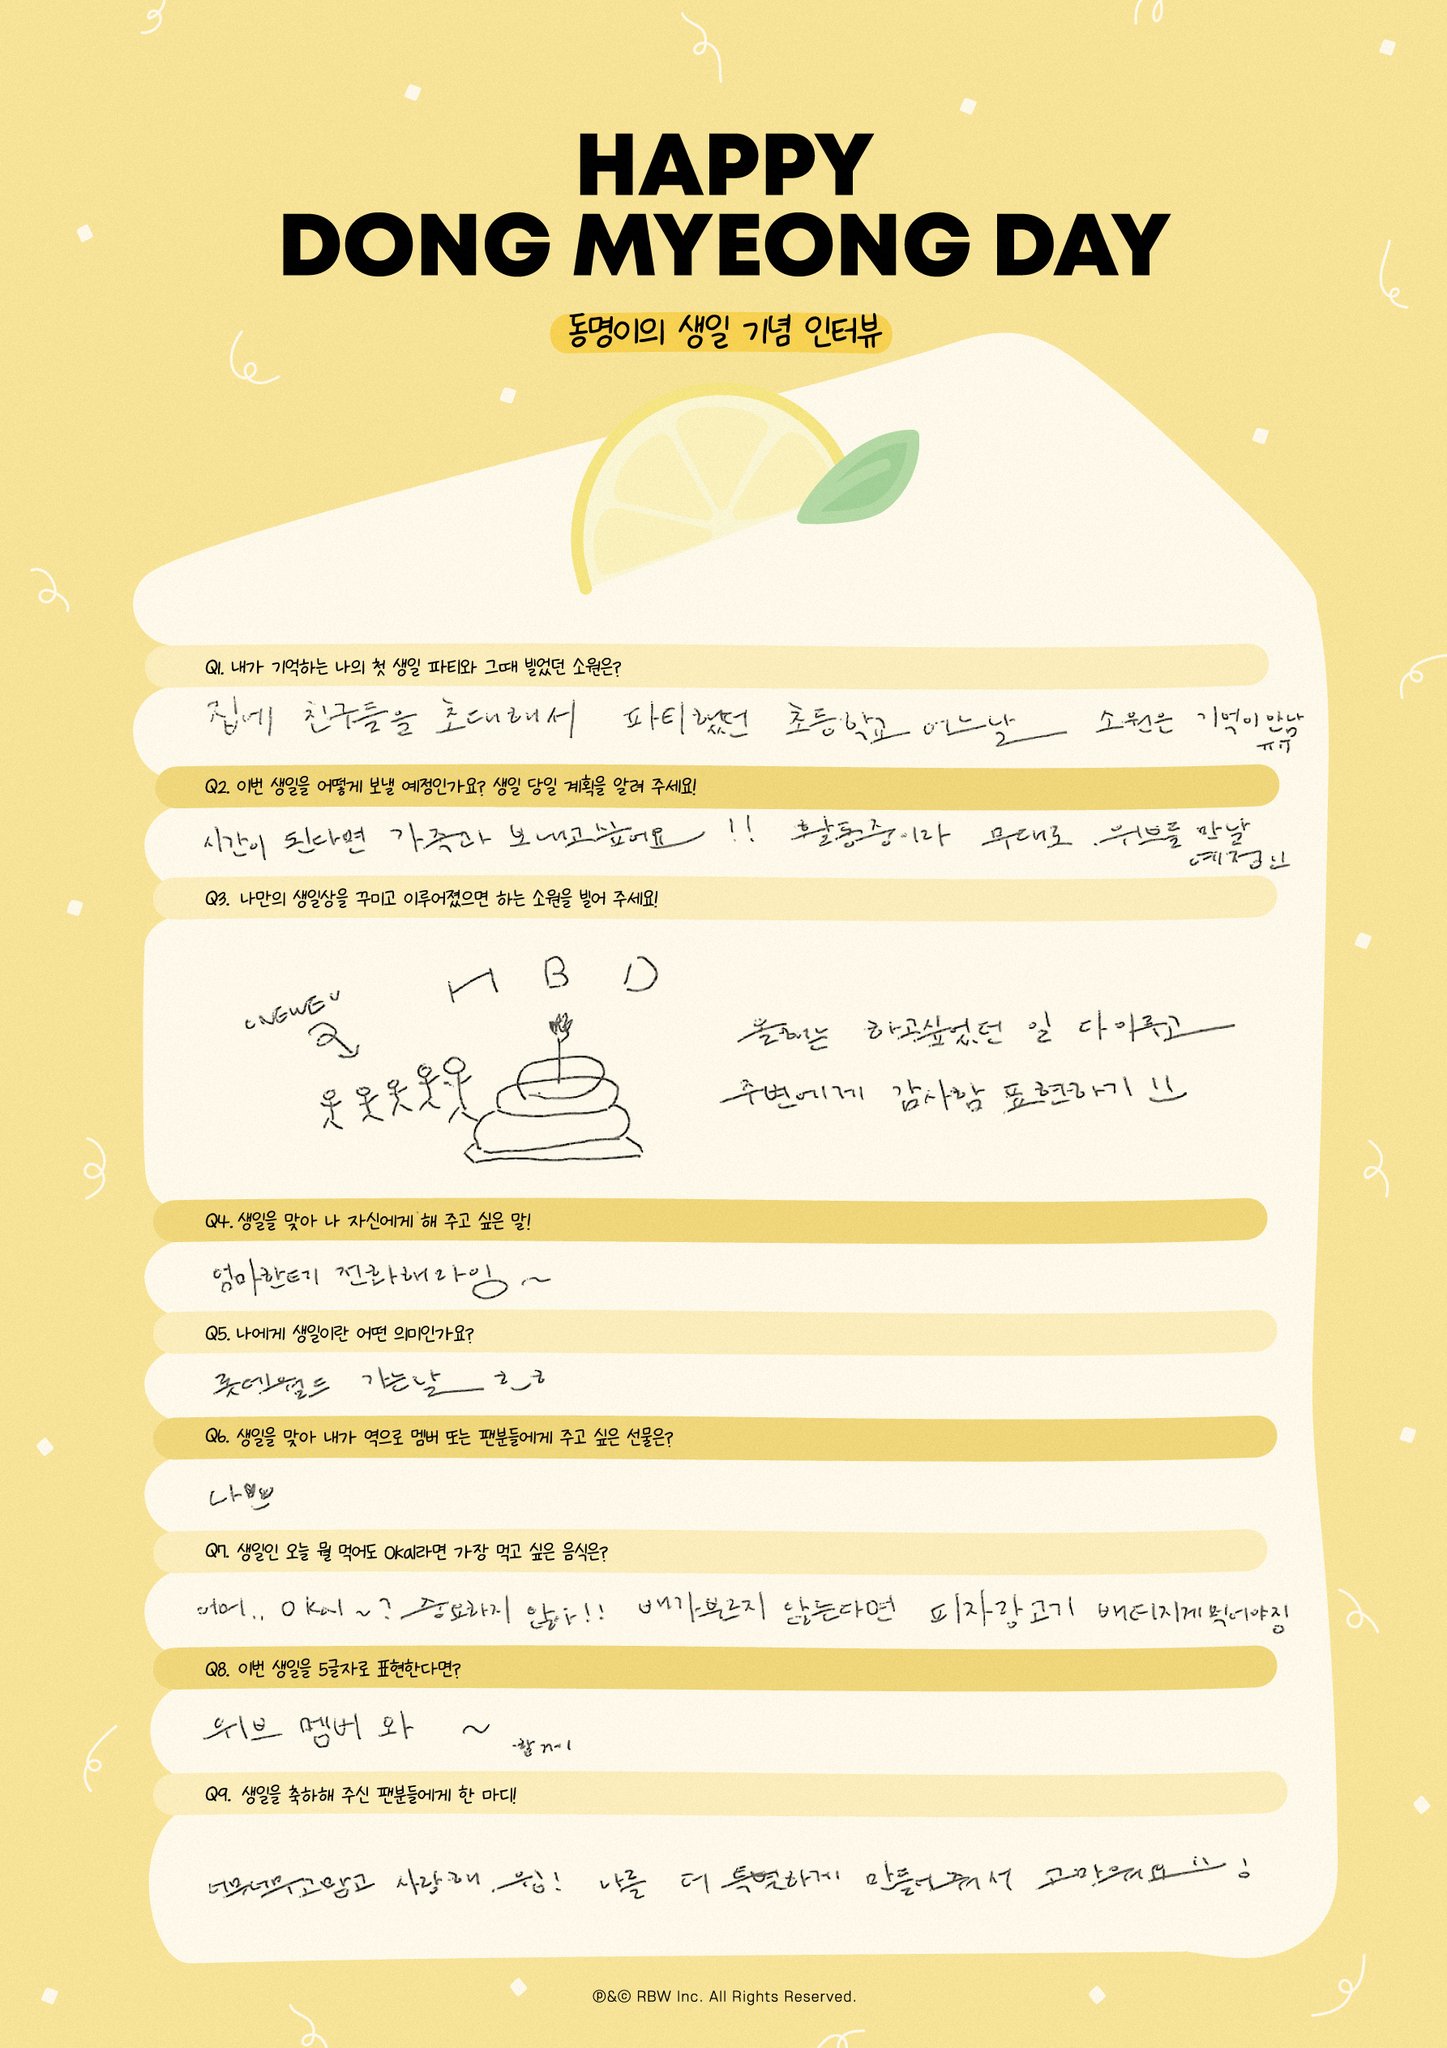 HAPPY
DONG MYEONG DAY
동명이의 생일 기념 인터뷰
Q1. 내가 기억하는 나의 첫 생일 파티와 그때 빌었던 소원은?
집에 친구들을 초대해서 파티했던 초등학교 어느날 소원은 기억이 안남
ㅠㅠ
Q2. 이번 생일을 어떻게 보낼 예정인가요? 생일 당일 계획을 알려 주세요!
시간이 된다면 가족과 보내고싶어요 !! 활동중이라 무대로 위브들 만날
예정!!
Q3. 나만의 생일상을 꾸미고 이루어졌으면 하는 소원을 빌어 주세요!
H B D
ONEWE
올해는 하고싶었던 일 다이루고
주변에게 감사함 표현하기 !!
Q4. 생일을 맞아 나 자신에게 해 주고 싶은 말!
엄마한테 전화해라잉~
Q5. 나에게 생일이란 어떤 의미인가요?
롯데월드 가는날 ㅎ_ㅎ
Q6. 생일을 맞아 내가 역으로 멤버 또는 팬분들에게 주고 싶은 선물은?
나
Q7. 생일인 오늘 뭘 먹어도 0kal라면 가장 먹고 싶은 음식은?
어머.. 0kal~? 중요하지 않아!! 배가부르지 않는다면 피자랑고기 배터지게 먹어야징
Q8. 이번 생일을 5글자로 표현한다면?
위브 멤버 와 ~
함께
Q9. 생일을 축하해 주신 팬분들에게 한 마디!
너무너무고맙고 사랑해 나를 더 특별하게 만들어줘서 고마워요!!
Ⓟ&ⓒ RBW Inc. All Rights Reserved.